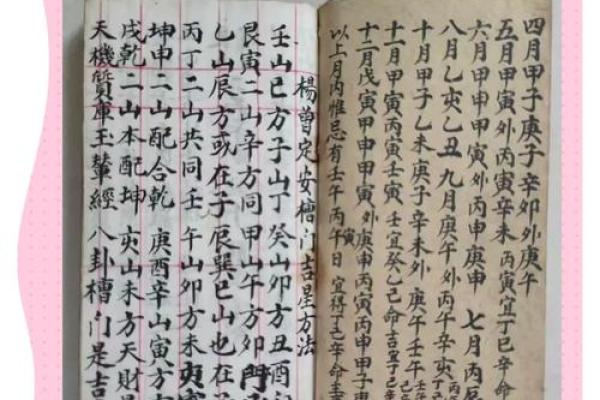 四月甲子庚子辛卯外庚午
五月甲寅外丙寅辛未丙寅宜丁巳辛命
六月甲申甲寅外丙申庚申 七月丙辰
八月乙亥乙丑九月庚午外丙午辛亥
十月甲子乙未庚子辛未外庚午壬午
十一月甲寅丙寅壬寅壬宜癸乙己命吉宜丁巳
十二月戊寅甲申甲寅外庚申丙寅丙申甲子庚
以上月內惟忌有壬午丙午日宜得丁己辛命
寅
楊曾定安檜门吉星方法
壬山巳方子山丁癸山卯方丑酉
艮寅二山辛方同甲山午方卯門
乙山辰方或在子辰巽巳山也在子
丙丁二山共同壬午山卯方未寅
坤申二山配合乾庚酉辛山寅方
戌乾二山本配坤亥山未方天財是
天機質庫玉輦經八卦檜门是吉